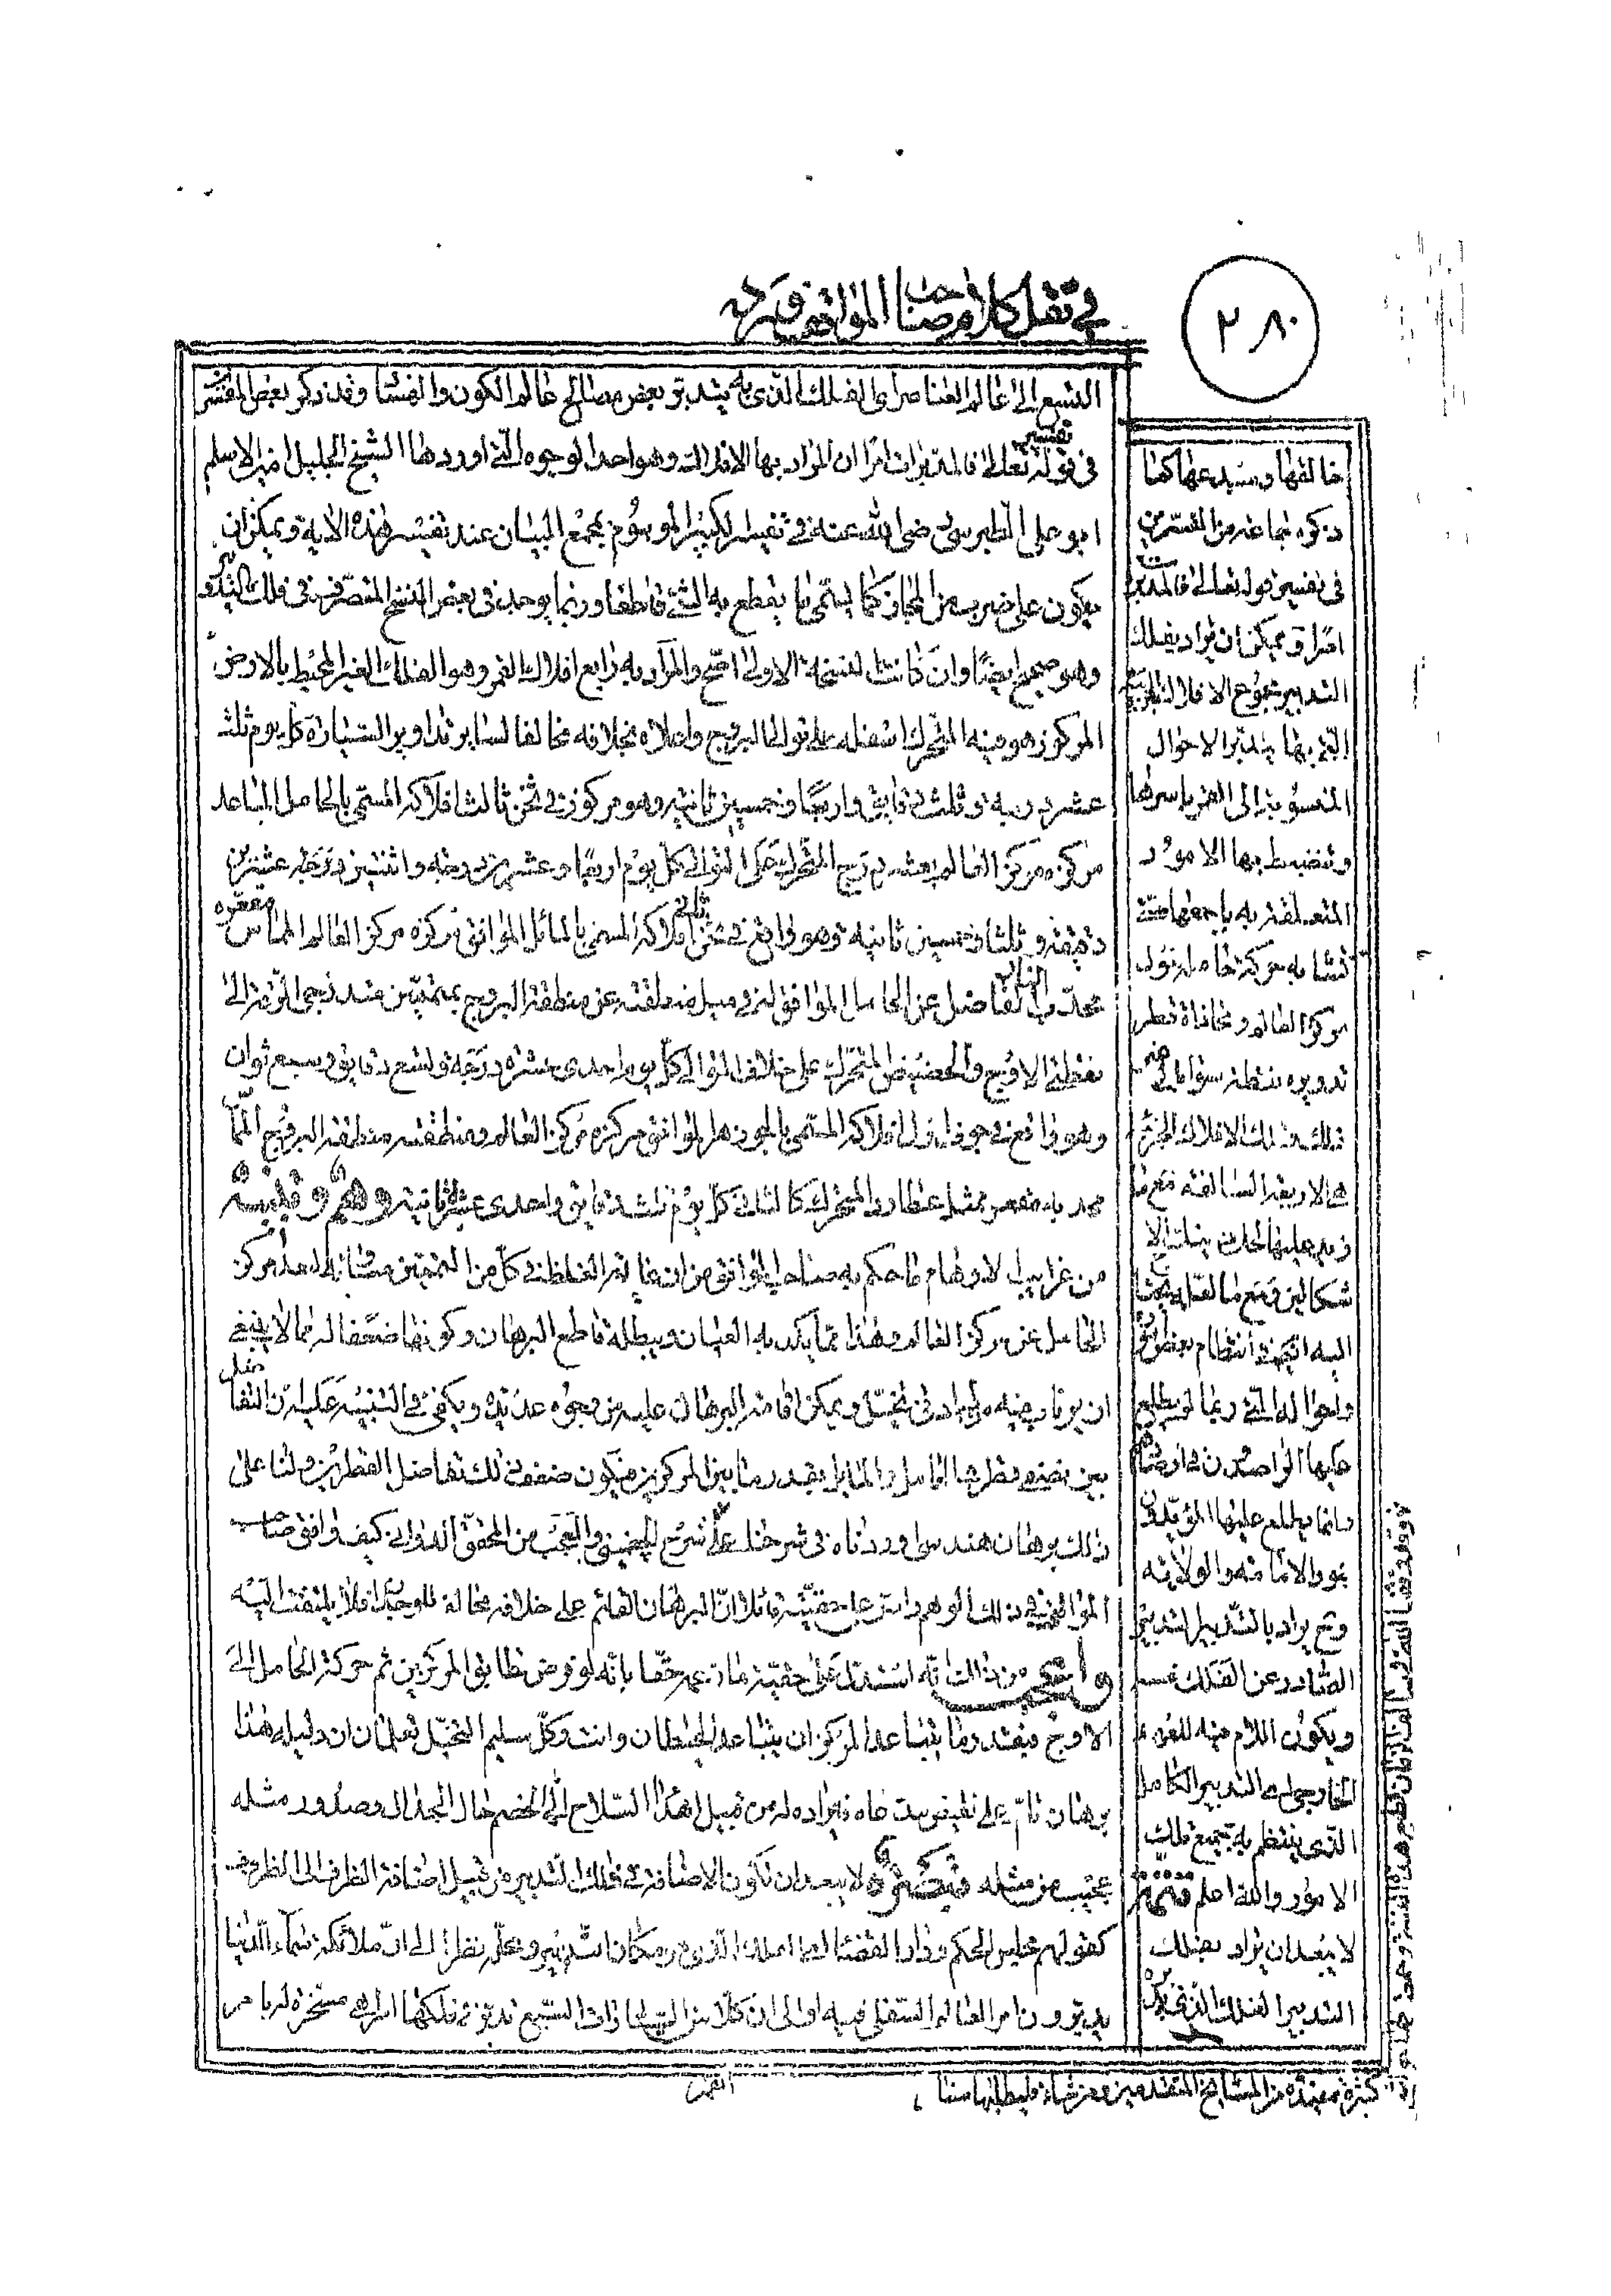 في نقل كلام صاحب المواقف ورده
٢٨٠
التسع الى عالم العناصر اى الفلك الذى به يتدبر بعض مصالح عالم الكون والفساد وقد ذكر بعض المفسرين
فى تفسير قوله تعالى فالمدبرات امرا ان المراد بها الافلاك وهو احد الوجوه التى اوردها الشيخ الجليل امين الاسلام
ابو على الطبرسى رضى الله عنه فى تفسيره الكبير الموسوم بمجمع البيان عند تفسير هذه الاية ويمكن ان
يكون على ضرب من المجاز كما يسمى ما يقطع به الشئ قاطعا وربما يوجد فى بعض النسخ المتصرف فى فلك التدوير
وهو صحيح ايضا وان كانت النسخة الاولى اصح والمراد به رابع افلاك القمر وهو الفلك الغير المحيط بالارض
المركوز هو فيه المتحرك اسفله على توالى البروج واعلاه بخلافه مخالفا لسائر تداوير السيارة كل يوم ثلث
عشر درجة وثلث دقايق واربعا وخمسين ثانية وهو مركوز فى ثخن ثالث افلاكه المسمى بالحامل المباعد
مركزه مركز العالم بعشر درج المتحرك على التوالى كل يوم اربعا وعشرين درجة واثنتين وعشرين
دقيقة وثلثا وخمسين ثانية وهو واقع فى ثخن ثانى افلاكه المسمى بالمائل الموافق مركزه مركز العالم المماس مقعره
محدب النار الفاضل عن الحامل الموافق له فى ميل منطقته عن منطقة البروج بمتممين متدرجى الرقة الى
نقطتى الاوج والحضيض المتحرك على خلاف التوالى كل يوم احدى عشرة درجة وتسع دقايق وسبع ثوان
وهو واقع فى جوف اول افلاكه المسمى بالجوزهر الموافق مركزه مركز العالم ومنطقته منطقة البروج المماس
محدبه مقعر ممثل عطارد المتحرك كالثانى كل يوم ثلث دقايق واحدى عشرة ثانية وهم وتنبيه
من غرايب الاوهام ما حكم به صاحب المواقف من ان غاية الغلظ فى كل من المتممين مساوية لبعد مركز
الحامل عن مركز العالم وهذا مما يكذبه العيان ويبطله قاطع البرهان وكونها ضعفا له مما لا ينبغى
ان يرتاب فيه من له ادنى تخيل ويمكن اقامة البرهان عليه من وجوه عديدة ويكفى فى التنبيه عليه ان التفاضل
بين نصفى قطرى الحامل والمايل بقدر ما بين المركزين فيكون ضعف ذلك تفاضل القطرين ولنا على
ذلك برهان هندسى اوردناه فى شرحنا على شرح الجغمينى والعجب من المحقق الدوانى كيف وافق صاحب
المواقف فى ذلك الوهم واصر على حقيته قائلا ان البرهان القائم على خلافه مخالف للوجدان فلا يلتفت اليه
واعجب من ذلك انه استدل على حقية مازعمه حقا بانه لو فرض تطابق المركزين ثم حركة الحامل الى
الاوج فبقدر ما يتباعد المركزان يتباعد المحيطان وانت وكل سليم التخيل تعلمان ان دليله هذا
برهان تام على نقيض مدعاه فايراده له من قبيل اهداء السلاح الى الخصم حال الجدال وصدور مثله
عجيب من مثله تبصرة لا يبعد ان تكون الاضافة فى فلك التدبير من قبيل اضافة الظرف الى المظروف
كقولهم مجلس الحكم ودار القضاء اى الفلك الذى هو مكان التدبير ومحله نظرا الى ان ملائكة سماء الدنيا
يدبرون امر العالم السفلى فيه او الى ان كلا من السيارات السبع تدبر فى فلكها امرا هى مسخرة له بامر
القمر
خالقها ومبدعها كما
ذكره جماعة من المفسرين
فى تفسير قوله تعالى فالمدبرات
امرا ويمكن ان يراد بفلك
التدبير مجموع الافلاك
التى بها يتدبر الاحوال
المنسوبة الى القمر باسرها
وتنضبط بها الامور
المتعلقة به باجمعها حتى
تشابه حركة حامله حول
مركز العالم ومحاذاة قطر
تدويره نقطة سواه الى
غير ذلك وتلك الافلاك الجزئية
هى الاربعة السالفة مع ما
زيد عليها لحل ذينك الا
شكالين ومع ما لعله يحتاج
اليه انتظام بعض اموره
واحواله التى ربما لم يطلع
عليها الراصدون فى ارصادهم
وانما يطلع عليها المؤيدون
بنور الامامة والولاية
وح يراد بالتدبير التدبير
الصادر عن الفلك نفسه
ويكون اللام فيه للعهد
الخارجى اى التدبير الكامل
الذى ينتظم به جميع تلك
الامور والله اعلم تتمة
لا يبعد ان يراد بفلك
التدبير الفلك الذى
كثيرة مفيدة من المشايخ المتقدمين ومن شاء فليطلبها منا